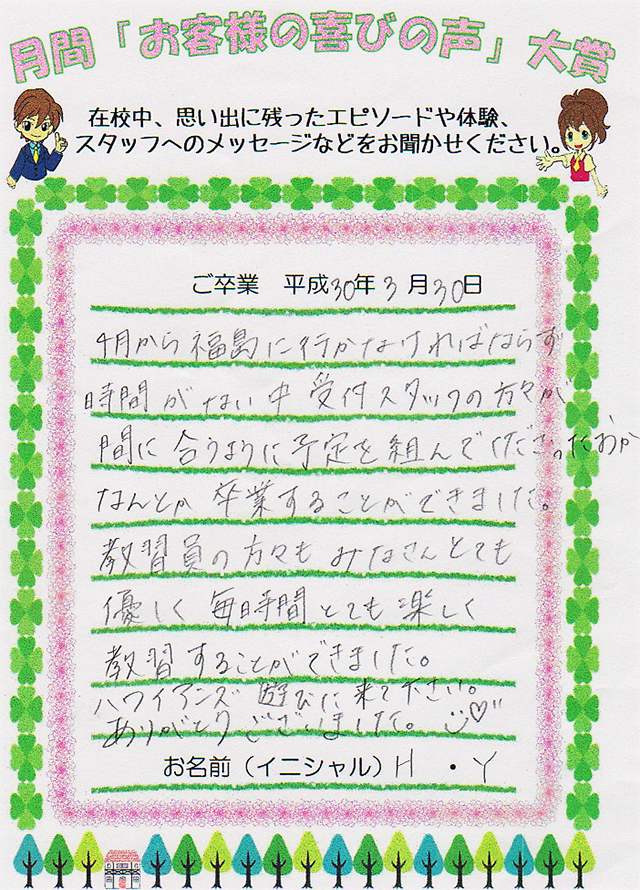 月間「お客様の喜びの声」大賞
在校中、思い出に残ったエピソードや体験、
スタッフへのメッセージなどをお聞かせください。
ご卒業　平成30年3月30日
4月から福島に行かなければならず
時間がない中 受付スタッフの方々が
間に合うように予定を組んでくださったおか
なんとか 卒業することができました。
教習員の方々も みなさんとても
優しく 毎日時間とても楽しく
教習することができました。
ハワイアンズ 遊びに来て下さい。
ありがとうございました。
お名前（イニシャル）H・Y